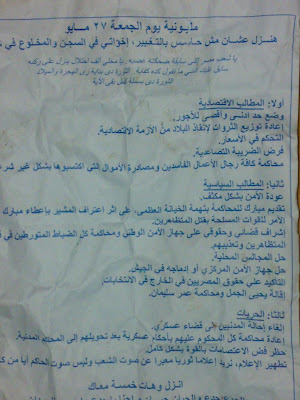 مليونية يوم الجمعة ٢٧ مـــايو
هننزل عشان مش حاسس بالتغيير، إخواتي في السجن والمخلوع في
أولا: المطالب الاقتصادية
وضع حد أدنى وأقصى للأجور.
إعادة توزيع الثروات لإنقاذ البلاد من الأزمة الاقتصادية.
التحكم في الأسعار.
فرض الضريبة التصاعدية.
محاكمة كافة رجال الأعمال الفاسدين ومصادرة الأموال التي اكتسبوها بشكل غير
ثانيا: المطالب السياسية
عودة الأمن بشكل مكثف.
تقديم مبارك للمحاكمة بتهمة الخيانة العظمى، على أثر اعتراف المشير بإعطاء مبارك
الأمر للقوات المسلحة بقتل المتظاهرين.
إشراف قضائي وحقوقي على جهاز الأمن الوطني ومحاكمة كل الضباط المتورطين في
المتظاهرين وتعذيبهم.
حل المجالس المحلية.
حل جهاز الأمن المركزي أو إدماجه في الجيش.
التأكيد على حقوق المصريين في الخارج في الانتخابات.
إقالة يحيى الجمل ومحاكمة عمر سليمان.
ثالثا: الحريات
إلغاء إحالة المدنيين إلى قضاء عسكري.
إعادة محاكمة كل المحكوم عليهم بأحكام عسكرية بعد تحويلهم إلى المحاكم المدنية.
حظر فض الاعتصامات بالقوة بشكل كامل.
تطهير الإعلام، نريد إعلاما ثوريا معبرا عن صوت الشعب وليس صوت الحاكم أيا من
انـزل وهـات خمسة معاك